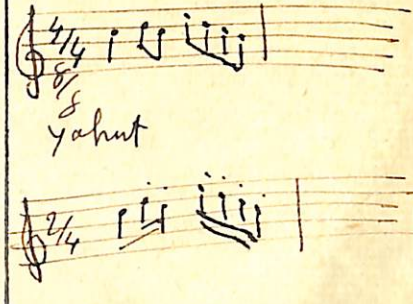 4/4
8/8
yahut
2/4